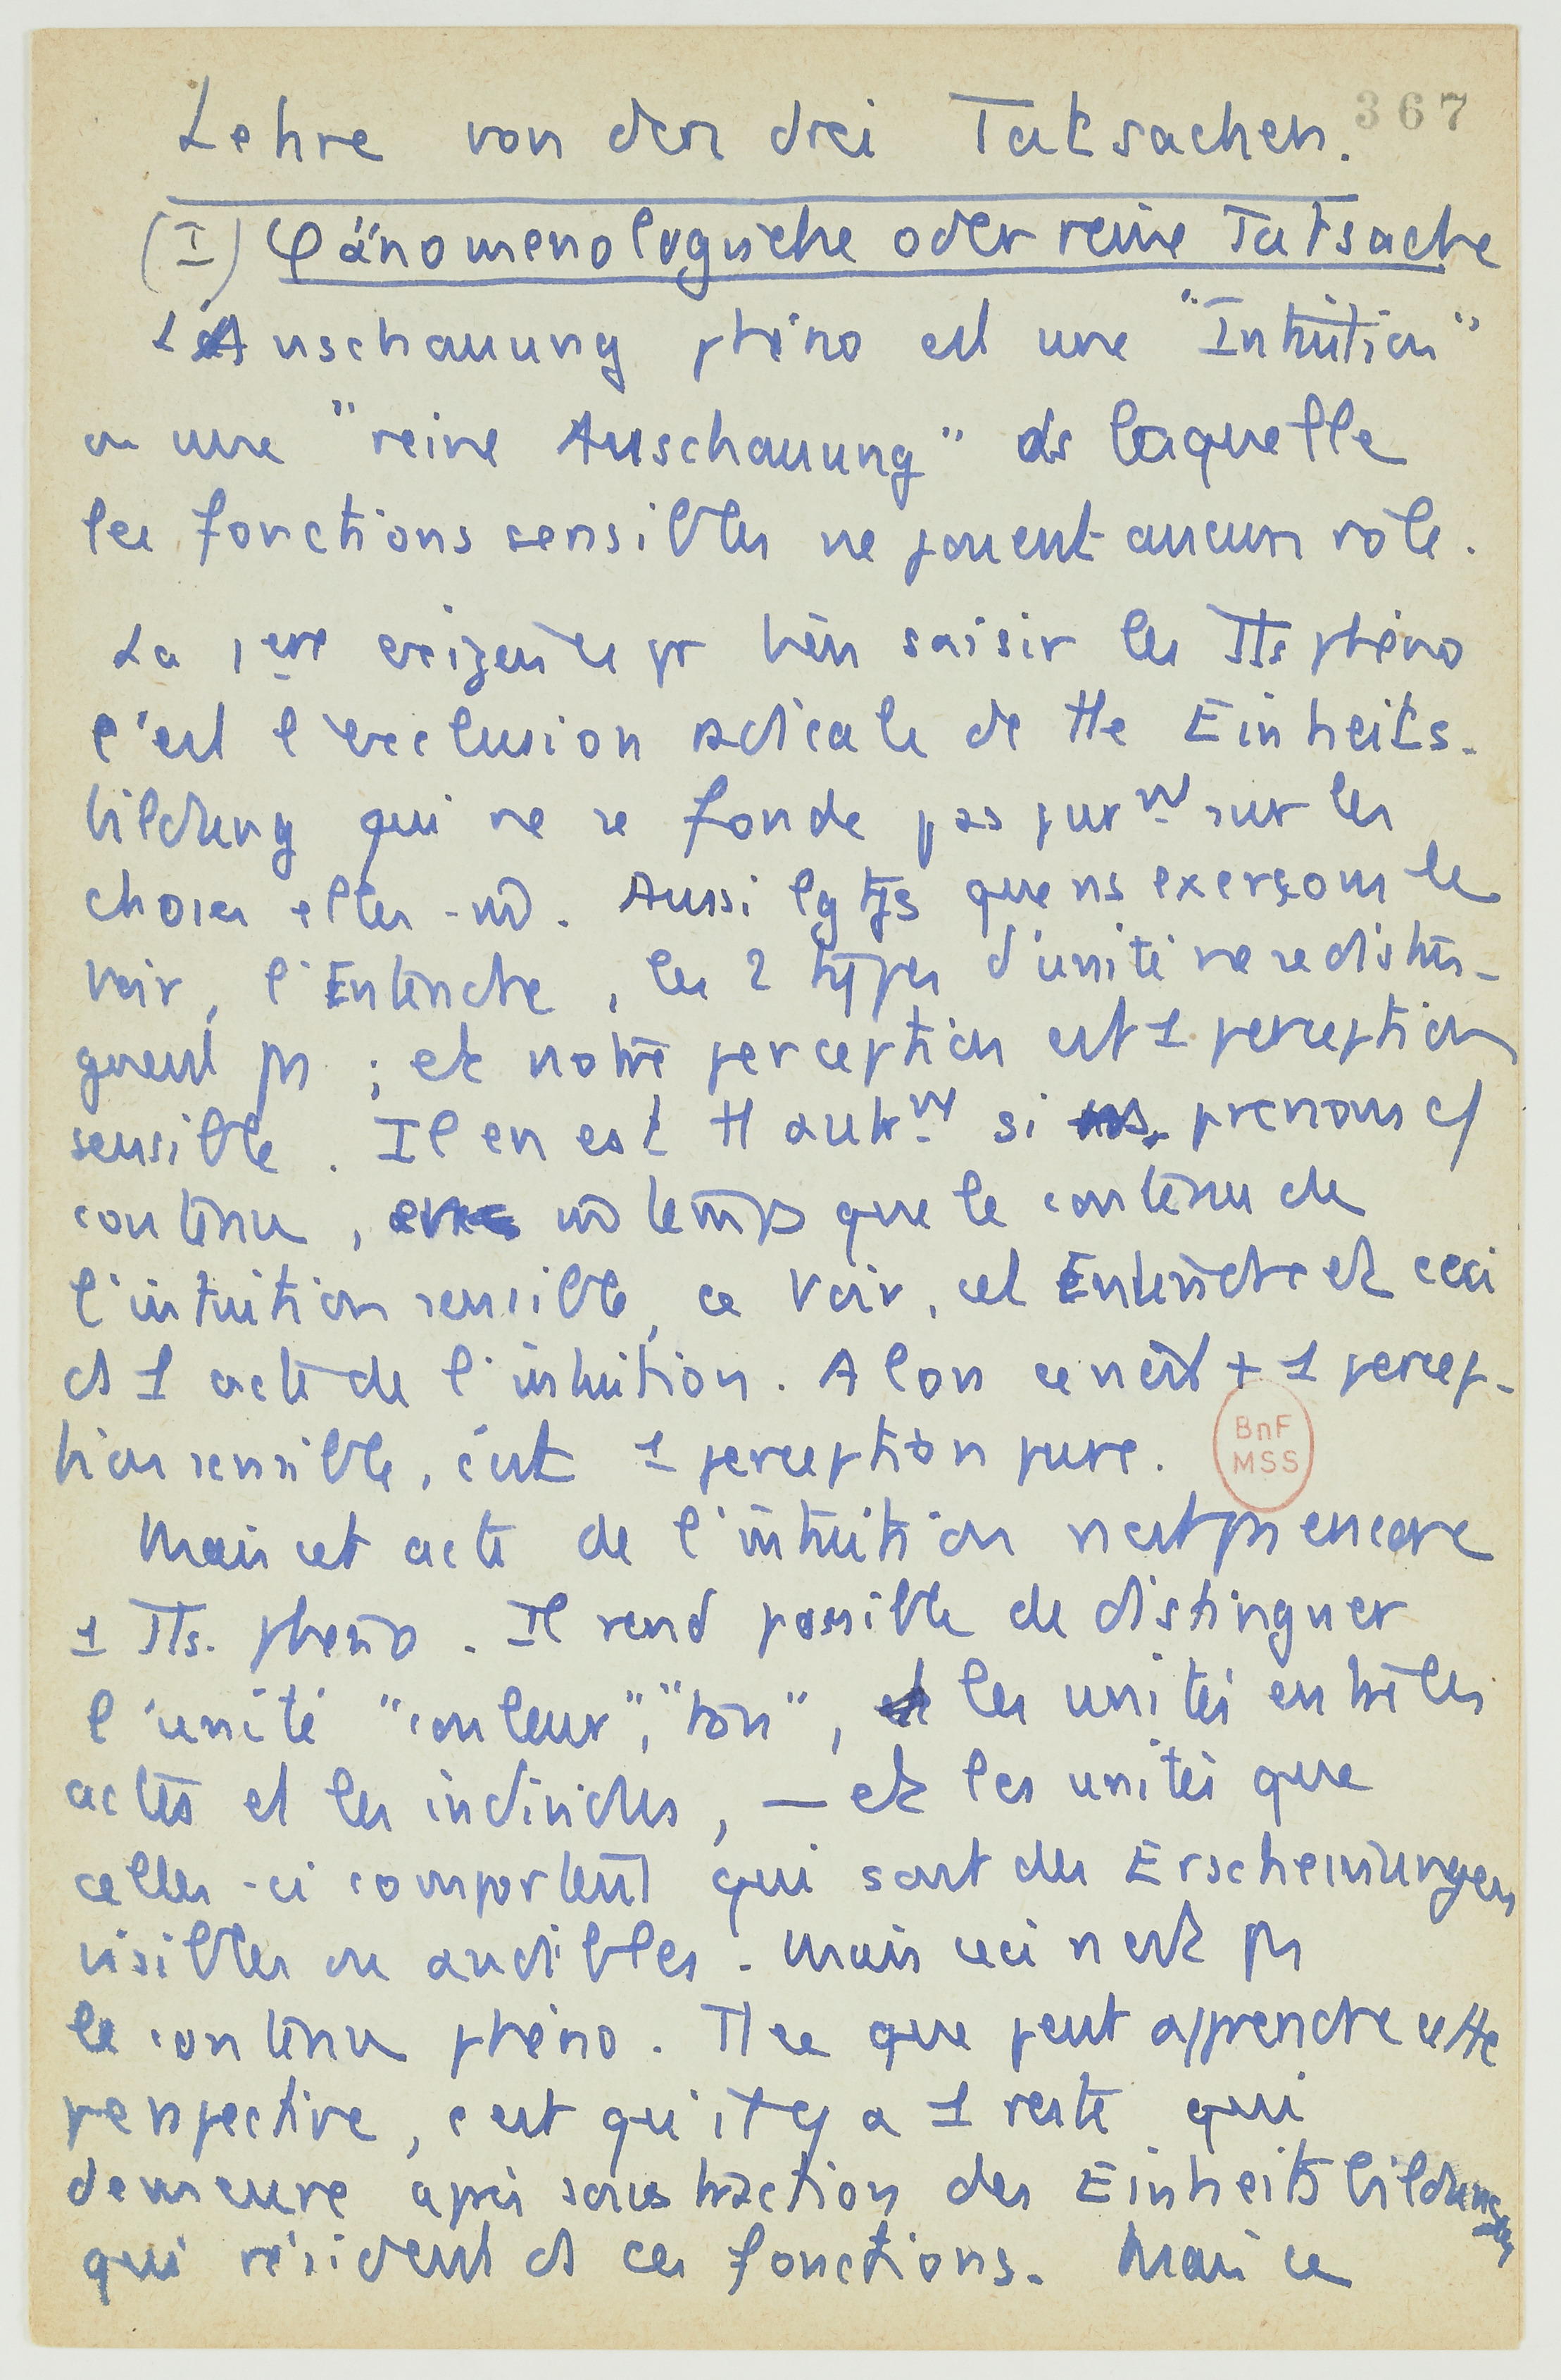 Lehre von den drei Tatsachen.
367
(I) Φänomenologische oder reine Tatsache
L'Anschauung phéno est une "Intuition"
ou une "reine Anschauung" ds laquelle
les fonctions sensibles ne jouent aucun rôle.
La 1ere exigence pr bien saisir les TTs phéno
c'est l'exclusion radicale de tte Einheits-
bildung qui ne se fonde pas purnt sur les
choses elles-m̂. Aussi lgtps que ns exerçons le
Voir, l'Entendre, les 2 types d'unité ne se distin-
guent ps ; et notre perception est 1 perception
sensible. Il en est tt autrnt si prenons c/
contenu, m̂ temps que le contenu de
l'intuition sensible, ce Voir, cet Entendre et ceci
ds 1 acte de l'intuition. Alors ce n'est + 1 percep-
tion sensible, c'est 1 perception pure.
BnF
MSS
Mais cet acte de l'intuition n'est ps encore
1 TTs. phéno. Il rend possible de distinguer
l'unité "couleur", "ton", les unités entre les
actes et les individus, — et les unités que
celles-ci comportent qui sont des Erscheinungen
visibles ou audibles. Mais ceci n'est ps
le contenu phéno. Tt ce que peut apprendre cette
perspective, c'est qu'il y a 1 reste qui
demeure après soustraction des Einheitsbildungen
qui résident ds ces fonctions. Mais ce